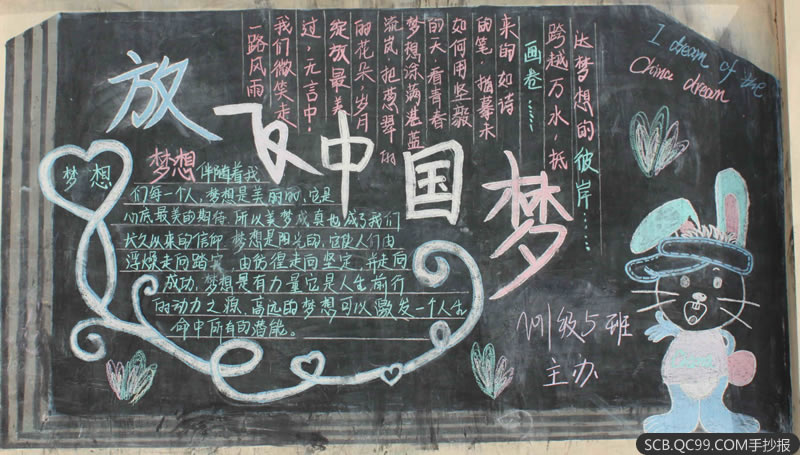 放飞中国梦
一路风雨
我们微笑走
过,无言中,
绽放最美
的花朵,岁月
流岚,把葱翠的
梦想涂满湛蓝
的天,看青春
如何用坚毅
的笔,描摹未
来的如诗
画卷……
跨越万水,抵
达梦想的彼岸……
I dream of the
China dream
梦想
梦想伴随着我
们每一个人,梦想是美丽的,它是
心底最美的期待,所以美梦成真也成了我们
长久以来的信仰,梦想是阳光的,它使人们由
浮燥走向踏实,由彷徨走向坚定,并走向
成功,梦想是有力量它是人生前行
的动力之源,高远的梦想可以激发一个人生
命中所有的潜能。
级5班
主办
SCB.QC99.COM手抄报